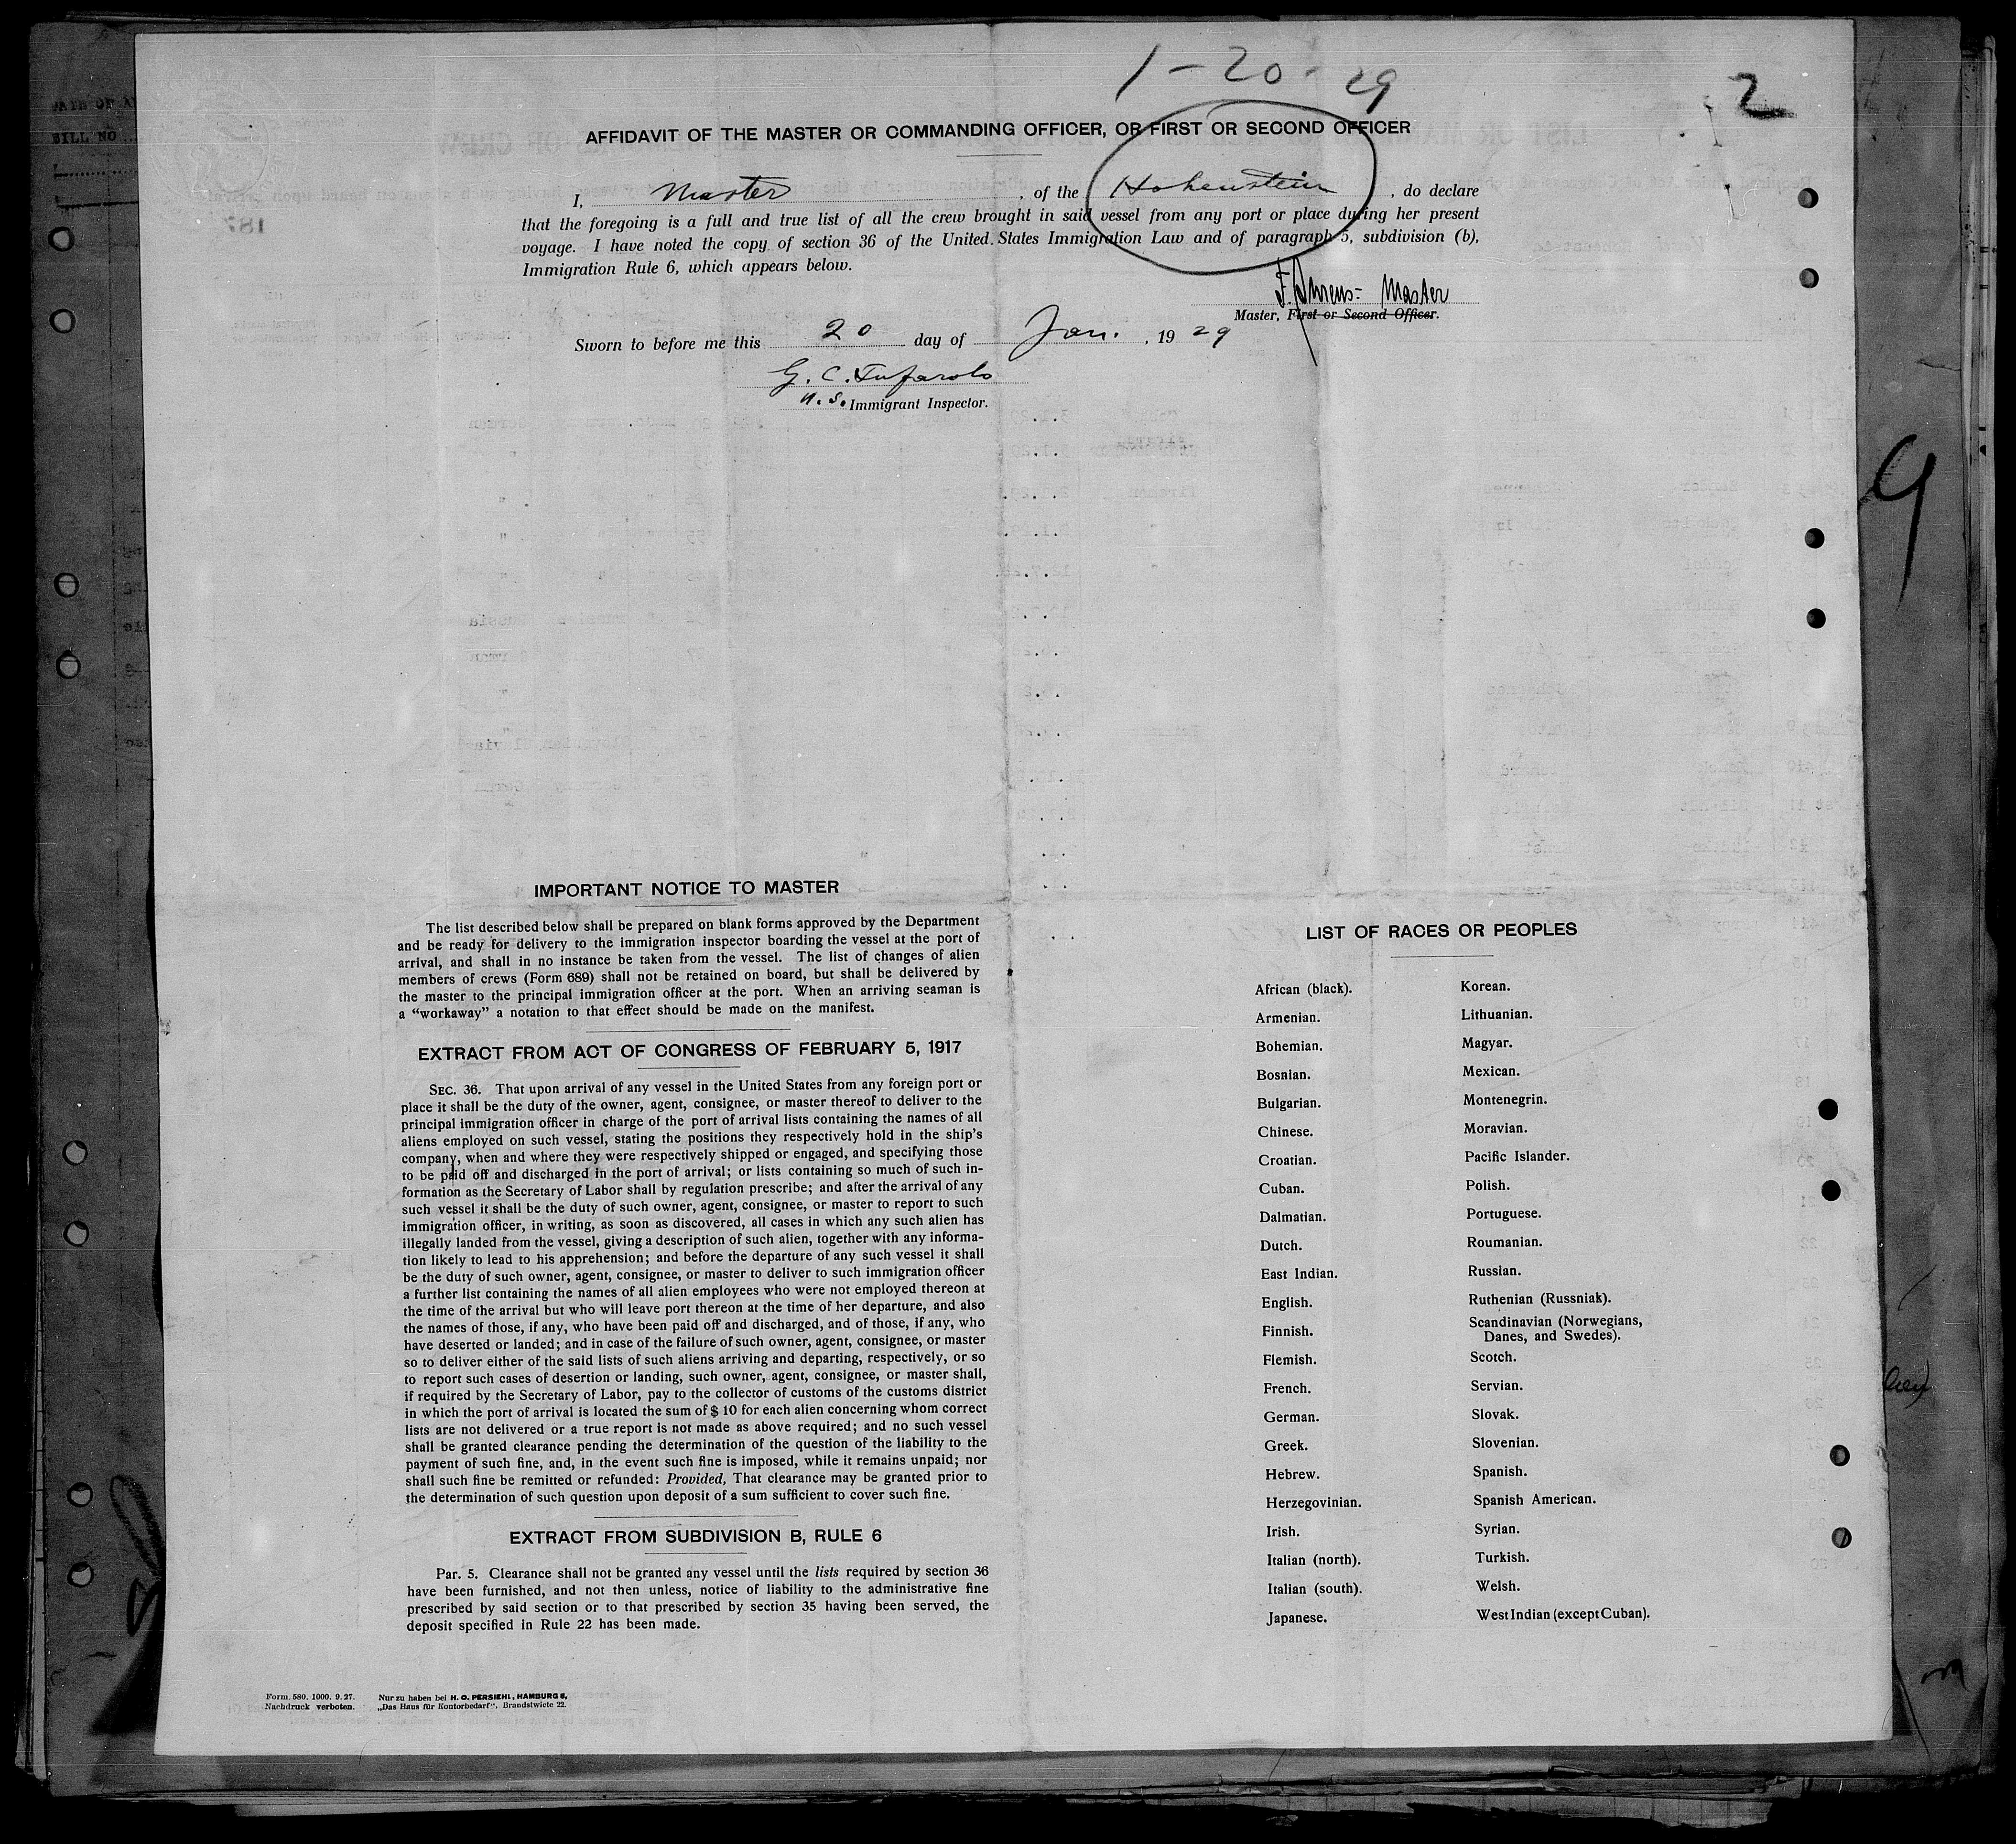 1-20-29
2
AFFIDAVIT OF THE MASTER OR COMMANDING OFFICER, OR FIRST OR SECOND OFFICER
I, Master, of the Hohenstein, do declare
that the foregoing is a full and true list of all the crew brought in said vessel from any port or place during her present
voyage. I have noted the copy of section 36 of the United States Immigration Law and of paragraph 5, subdivision (b),
Immigration Rule 6, which appears below.
F. Ahrens - Master
Master, First or Second Officer.
Sworn to before me this 20 day of Jan., 1929
G. C.
U. S. Immigrant Inspector.
IMPORTANT NOTICE TO MASTER
The list described below shall be prepared on blank forms approved by the Department
and be ready for delivery to the immigration inspector boarding the vessel at the port of
arrival, and shall in no instance be taken from the vessel. The list of changes of alien
members of crews (Form 689) shall not be retained on board, but shall be delivered by
the master to the principal immigration officer at the port. When an arriving seaman is
a "workaway" a notation to that effect should be made on the manifest.
EXTRACT FROM ACT OF CONGRESS OF FEBRUARY 5, 1917
SEC. 36. That upon arrival of any vessel in the United States from any foreign port or
place it shall be the duty of the owner, agent, consignee, or master thereof to deliver to the
principal immigration officer in charge of the port of arrival lists containing the names of all
aliens employed on such vessel, stating the positions they respectively hold in the ship's
company, when and where they were respectively shipped or engaged, and specifying those
to be paid off and discharged in the port of arrival; or lists containing so much of such in-
formation as the Secretary of Labor shall by regulation prescribe; and after the arrival of any
such vessel it shall be the duty of such owner, agent, consignee, or master to report to such
immigration officer, in writing, as soon as discovered, all cases in which any such alien has
illegally landed from the vessel, giving a description of such alien, together with any informa-
tion likely to lead to his apprehension; and before the departure of any such vessel it shall
be the duty of such owner, agent, consignee, or master to deliver to such immigration officer
a further list containing the names of all alien employees who were not employed thereon at
the time of the arrival but who will leave port thereon at the time of her departure, and also
the names of those, if any, who have been paid off and discharged, and of those, if any, who
have deserted or landed; and in case of the failure of such owner, agent, consignee, or master
so to deliver either of the said lists of such aliens arriving and departing, respectively, or so
to report such cases of desertion or landing, such owner, agent, consignee, or master shall,
if required by the Secretary of Labor, pay to the collector of customs of the customs district
in which the port of arrival is located the sum of $ 10 for each alien concerning whom correct
lists are not delivered or a true report is not made as above required; and no such vessel
shall be granted clearance pending the determination of the question of the liability to the
payment of such fine, and, in the event such fine is imposed, while it remains unpaid; nor
shall such fine be remitted or refunded: Provided, That clearance may be granted prior to
the determination of such question upon deposit of a sum sufficient to cover such fine.
EXTRACT FROM SUBDIVISION B, RULE 6
Par. 5. Clearance shall not be granted any vessel until the lists required by section 36
have been furnished, and not then unless, notice of liability to the administrative fine
prescribed by said section or to that prescribed by section 35 having been served, the
deposit specified in Rule 22 has been made.
LIST OF RACES OR PEOPLES
African (black).
Armenian.
Bohemian.
Bosnian.
Bulgarian.
Chinese.
Croatian.
Cuban.
Dalmatian.
Dutch.
East Indian.
English.
Finnish.
Flemish.
French.
German.
Greek.
Hebrew.
Herzegovinian.
Irish.
Italian (north).
Italian (south).
Japanese.
Korean.
Lithuanian.
Magyar.
Mexican.
Montenegrin.
Moravian.
Pacific Islander.
Polish.
Portuguese.
Roumanian.
Russian.
Ruthenian (Russniak).
Scandinavian (Norwegians,
Danes, and Swedes).
Scotch.
Servian.
Slovak.
Slovenian.
Spanish.
Spanish American.
Syrian.
Turkish.
Welsh.
West Indian (except Cuban).
Form. 580. 1000. 9. 27.
Nachdruck verboten.
Nur zu haben bei H. O. PERSIEHL, HAMBURG 8,
„Das Haus für Kontorbedarf“. Brandstwiete 22.